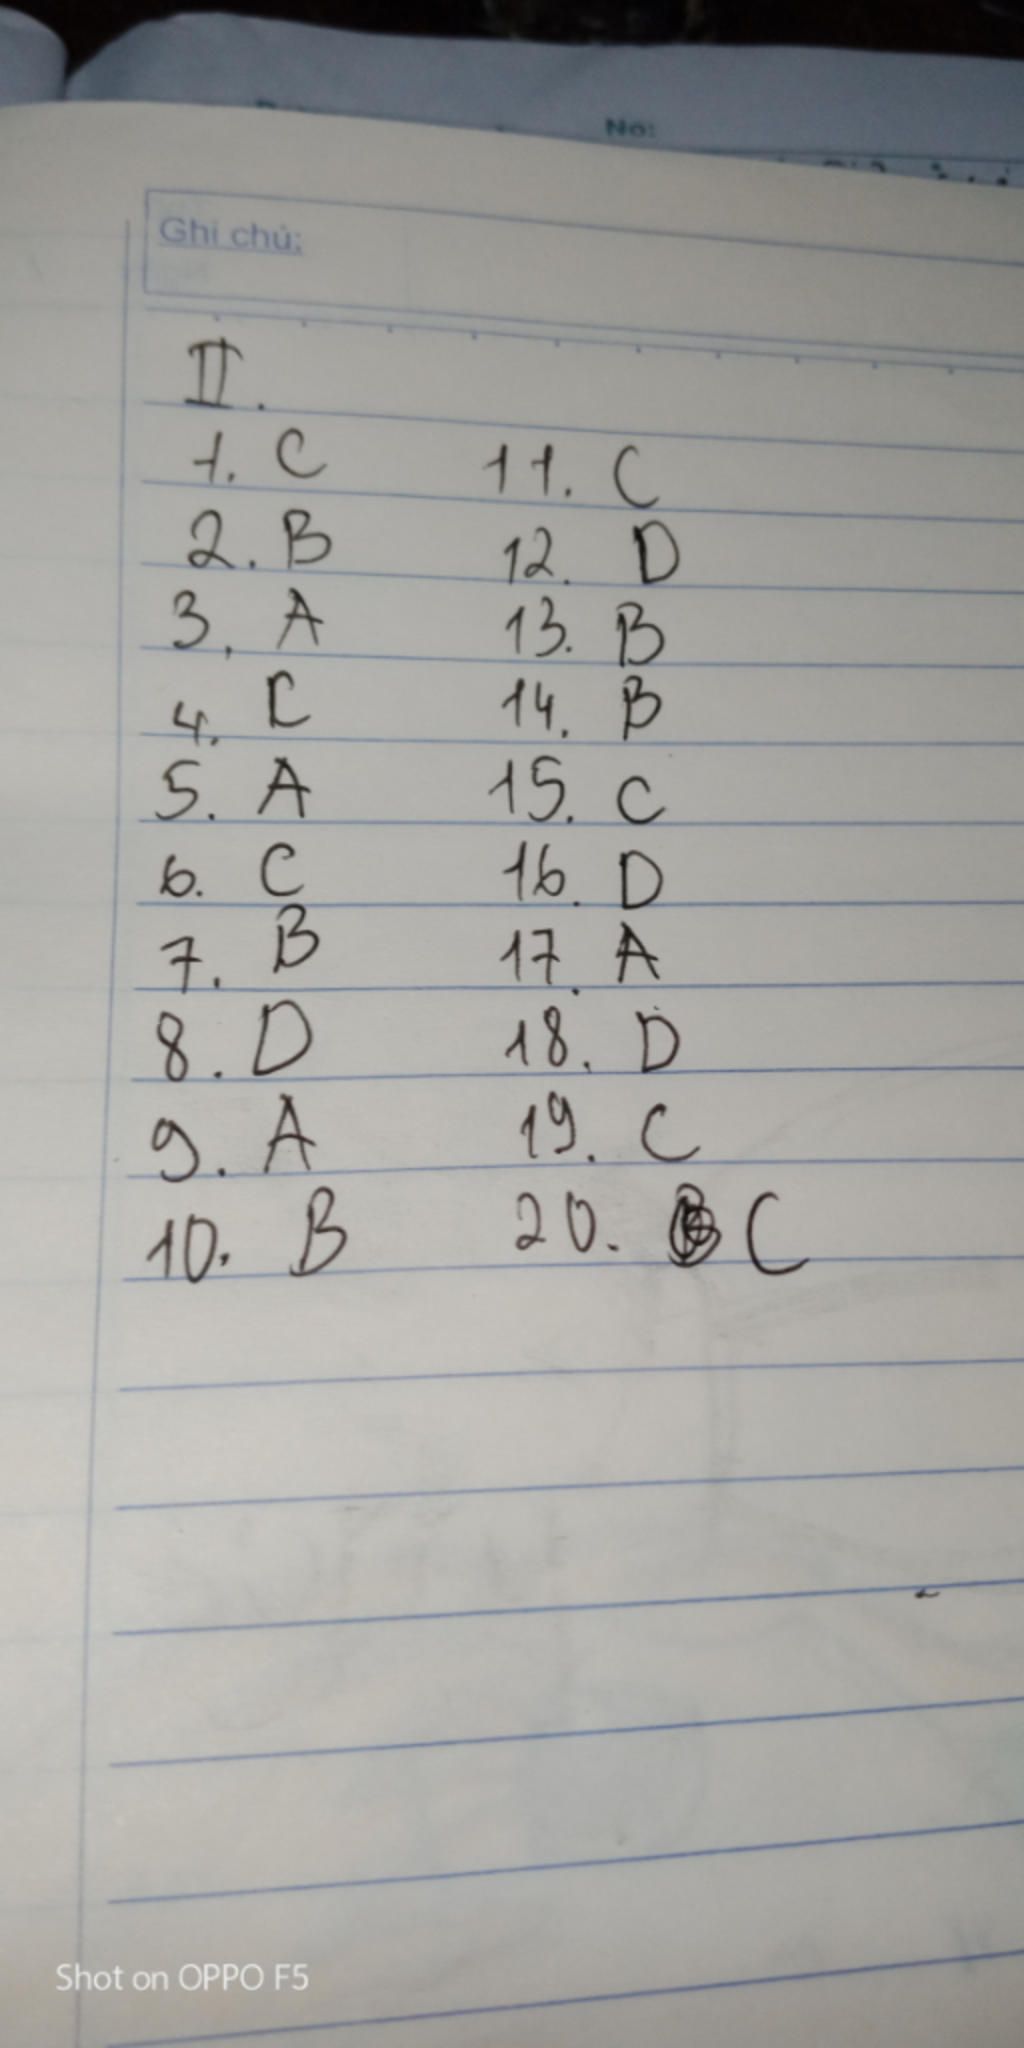 No:
Ghi chú:
II.
1. C 11. C
2. B 12. D
3, A 13. B
4. C 14. B
5. A 15. C
6. C 16. D
7. B 17. A
8. D 18. D
9. A 19. C
10. B 20. C
Shot on OPPO F5